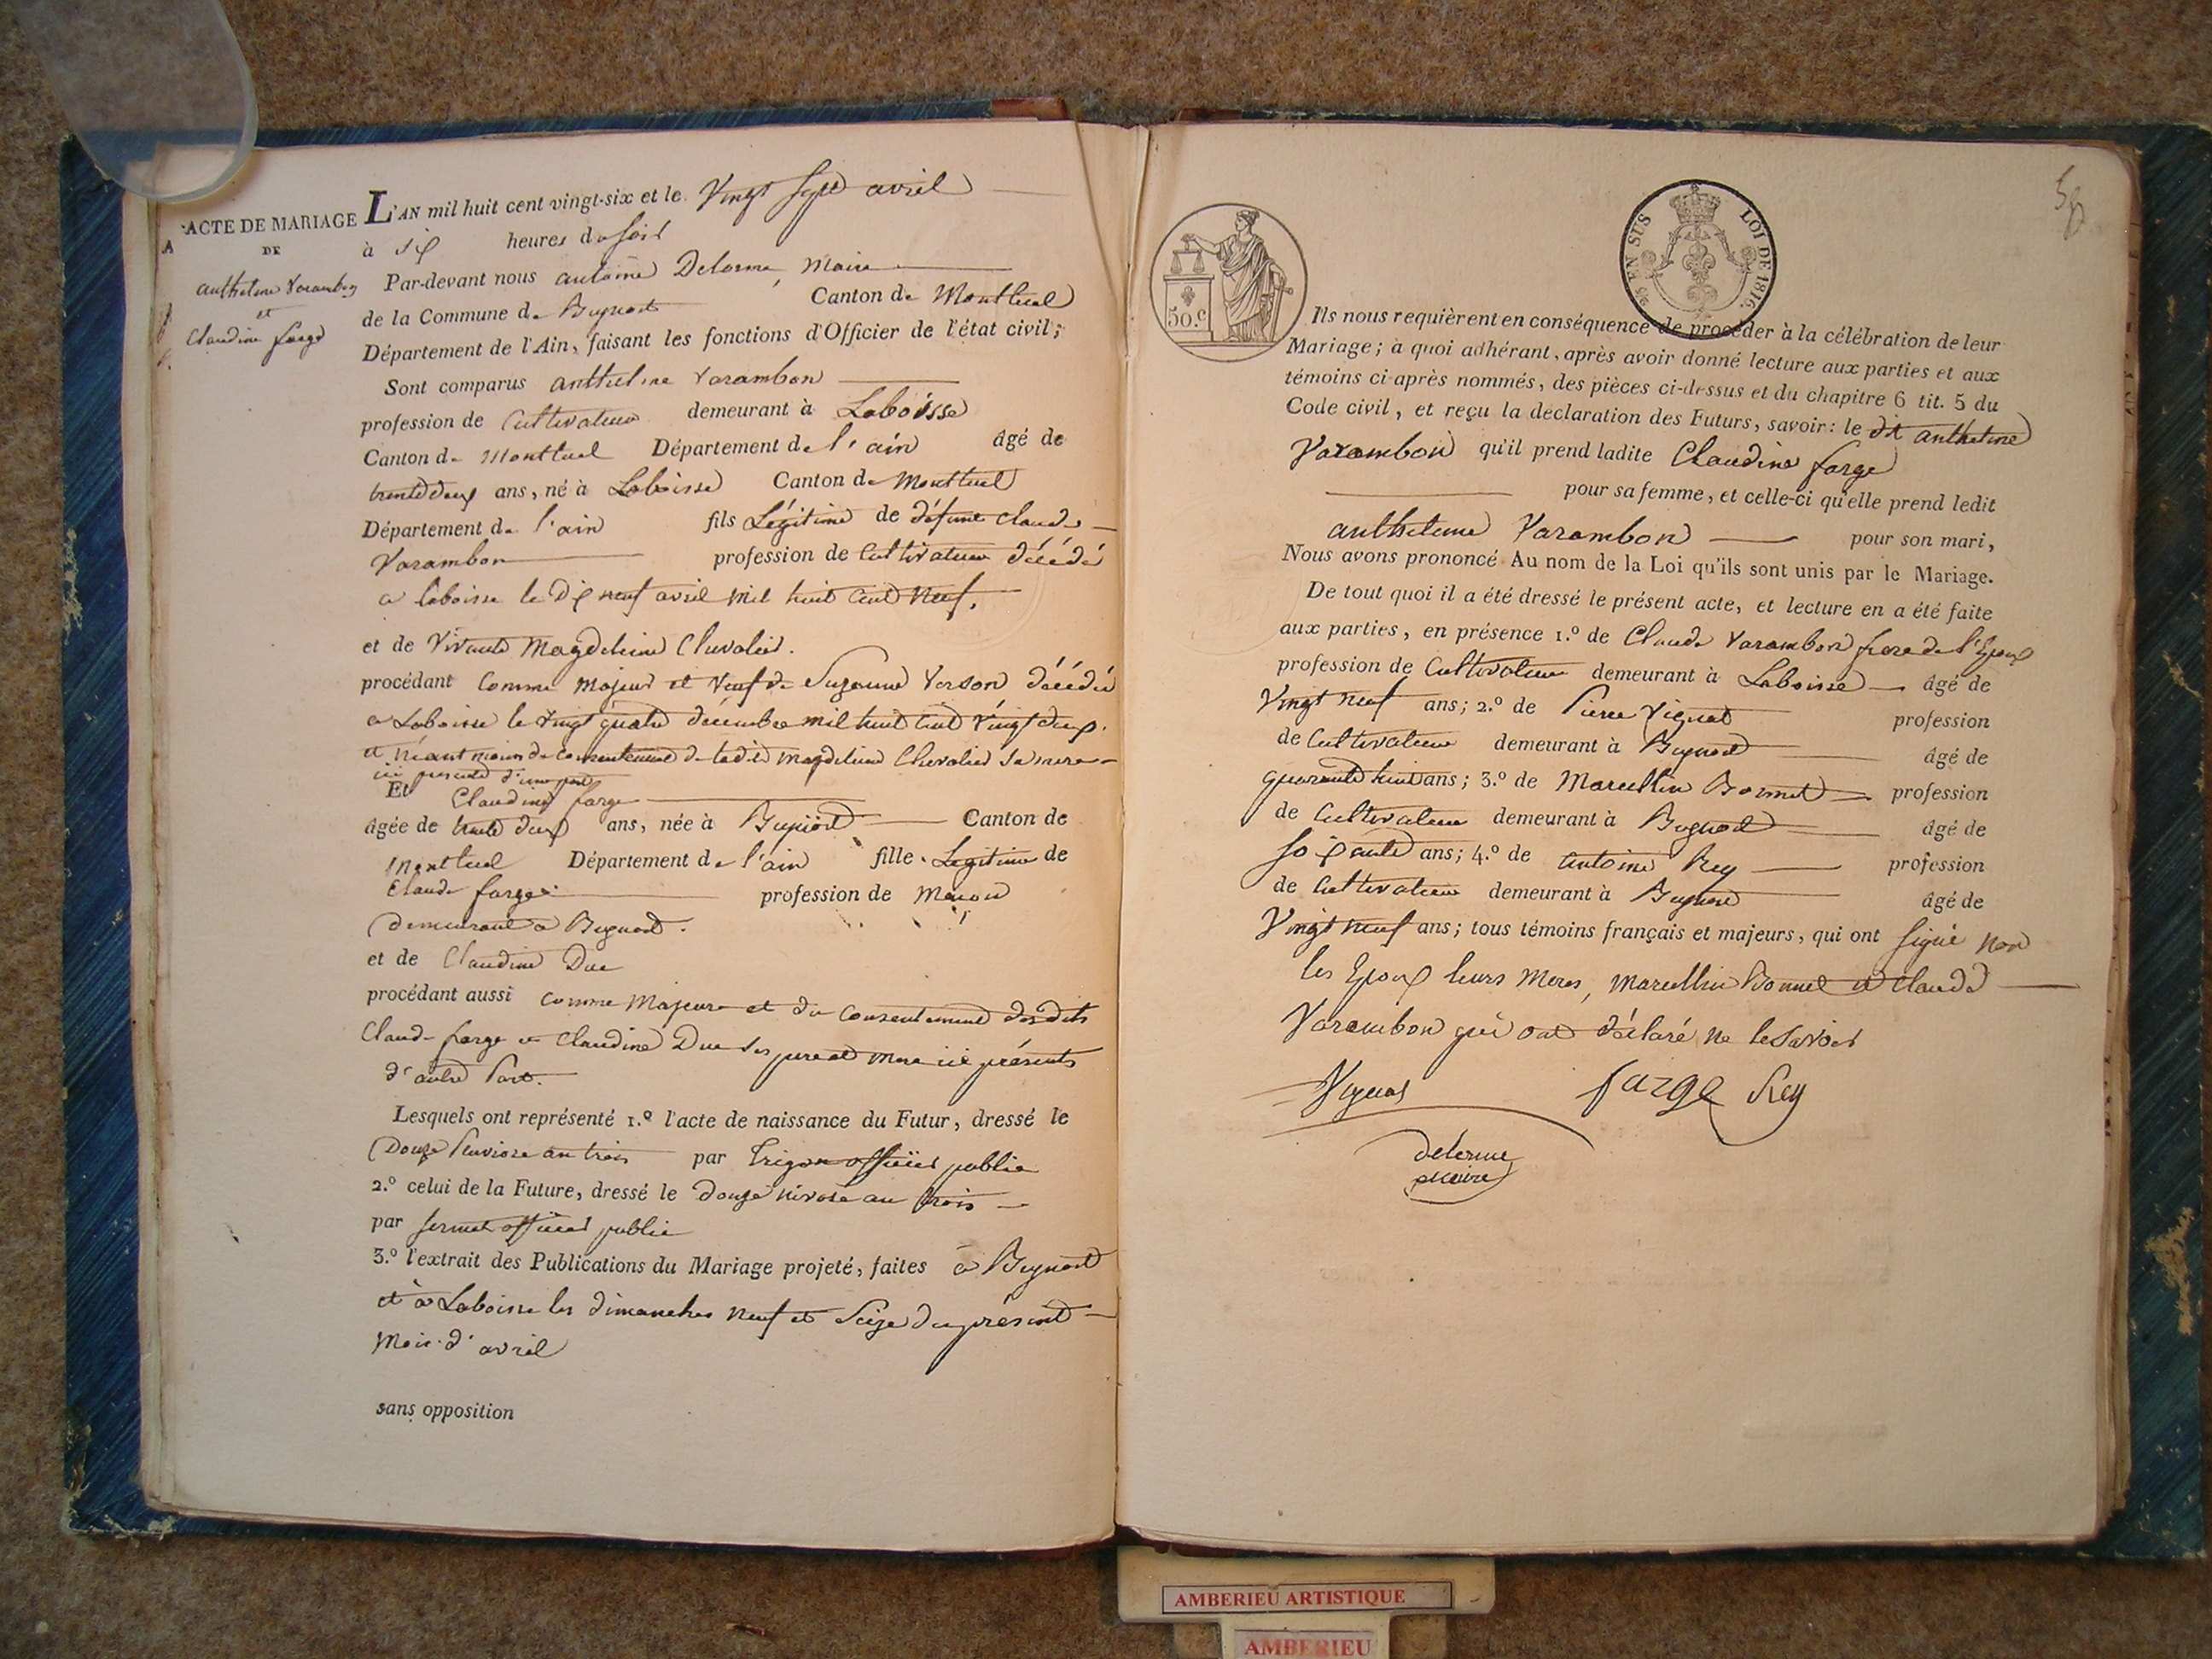 ACTE DE MARIAGE
DE
anthelme Varambon
et
Claudine farge
L'AN mil huit cent vingt-six et le Vingt Sept avril
à six heures du soir
Par-devant nous antoine Delorme, Maire
de la Commune de Beynost Canton de Montluel
Département de l'Ain, faisant les fonctions d'Officier de l'état civil;
Sont comparus anthelme Varambon
profession de Cultivateur demeurant à Laboisse
Canton de Montluel Département de l'ain âgé de
trente deux ans, né à Laboisse Canton de Montluel
Département de l'ain fils Légitime de défunt Claude
Varambon profession de Cultivateur décédé
a laboisse le Dix neuf avril mil huit cent Neuf,
et de Vivante Magdeleine Chevalier.
procédant Comme Majeur et Veuf de Suzanne Verson décédée
a Laboisse le Vingt quatre décembre mil huit cent Vingt deux.
et néantmoins du Consentement de ladite magdeleine Chevalier Sa mere
ici presente d'une part
Et Claudine farge
âgée de trente deux ans, née à Beynost Canton de
Montluel Département de l'ain fille Legitime de
Claude farge profession de Maçon
Demeurant a Beynost.
et de Claudine Duc
procédant aussi comme Majeure et du Consentement desdits
Claude farge et Claudine Duc ses pere et mere ici présents
d'autre Part.
Lesquels ont représenté 1.º l'acte de naissance du Futur, dressé le
Douze Pluviose an trois par Trigon officier public
2.º celui de la Future, dressé le douze nivose an trois
par officier public
3.º l'extrait des Publications du Mariage projeté, faites à Beynost
et à Laboisse les dimanches neuf et Seize du présent
Mois d'avril
sans opposition
50.c
25 EN SUS LOI DE 1816.
Ils nous requièrent en conséquence de procéder à la célébration de leur
Mariage; à quoi adhérant, après avoir donné lecture aux parties et aux
témoins ci-après nommés, des pièces ci-dessus et du chapitre 6 tit. 5 du
Code civil, et reçu la déclaration des Futurs, savoir: le dit anthelme
Varambon qu'il prend ladite Claudine farge
pour sa femme, et celle-ci qu'elle prend ledit
anthelme Varambon pour son mari,
Nous avons prononcé Au nom de la Loi qu'ils sont unis par le Mariage.
De tout quoi il a été dressé le présent acte, et lecture en a été faite
aux parties, en présence 1.º de Claude Varambon frere de l'Epoux
profession de Cultivateur demeurant à Laboisse âgé de
Vingt neuf ans; 2.º de Pierre Vignat profession
de Cultivateur demeurant à Beynost âgé de
quarante huit ans; 3.º de Marcellin Bonnet profession
de Cultivateur demeurant à Beynost âgé de
Soixante ans; 4.º de Antoine Rey profession
de Cultivateur demeurant à Beynost âgé de
Vingt neuf ans; tous témoins français et majeurs, qui ont signé non
les Epoux leurs Meres, Marcellin Bonnet et Claude
Varambon qui ont déclaré ne le savoir
Vignat farge Rey
delorme
maire
AMBERIEU ARTISTIQUE
AMBERIEU